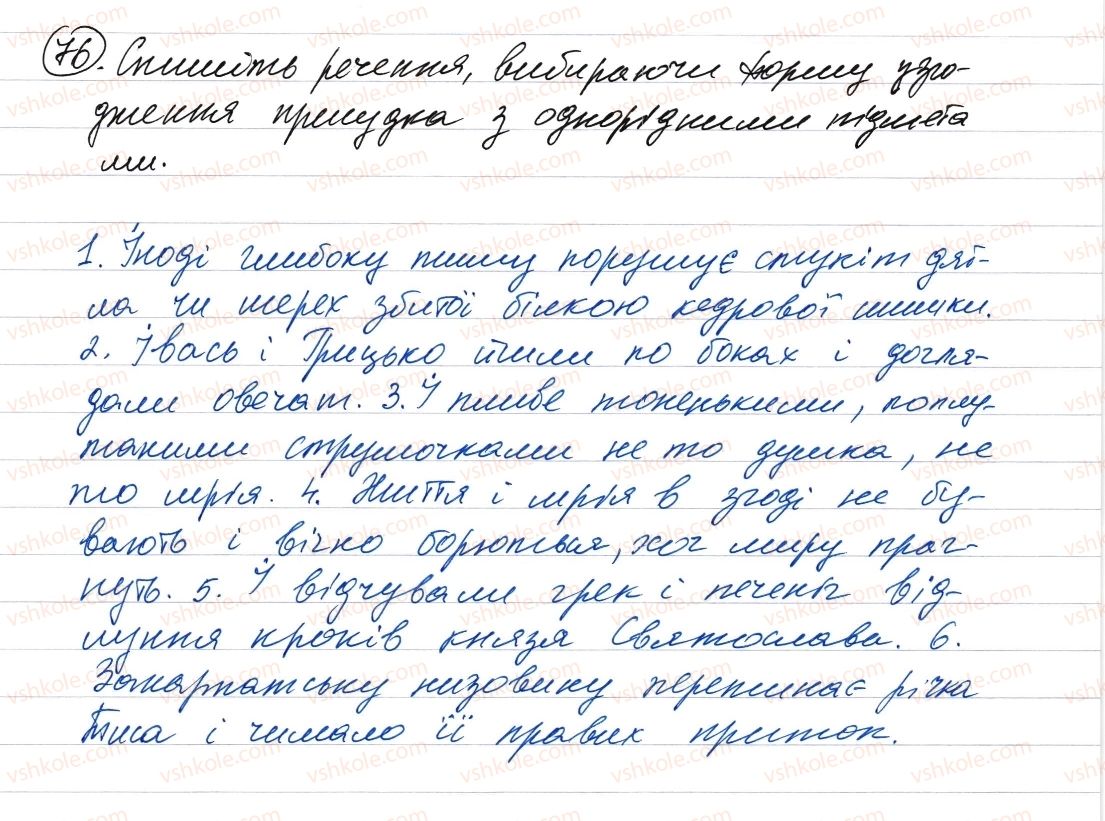 76. Спишіть речення, вибираючи форму узго-
дження присудка з однорідними підмета
ми.
1. Іноді глибоку тишу порушує стукіт дят-
ла чи шерех збитої білкою кедрової шишки.
2. Івась і Грицько йшли по боках і догля-
дали овечат. 3. І пливе тоненькими, поплу-
таними струмочками не то думка, не
то мрія. 4. Життя і мрія в згоді не бу-
вають і вічно борються, хоч миру праг-
нуть. 5. І відчували грек і печеніг від-
луння кроків князя Святослава. 6.
Закарпатську низовину перетинає річка
Тиса і чимало її правих приток.